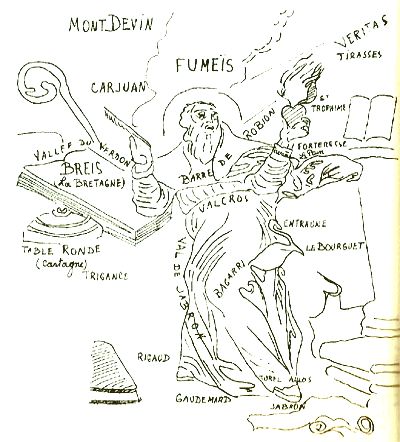 MONT DEVIN
VERITAS
TIRASSES
FUMEÏS
CARJUAN
ST
TROPHIME
BARRE DE ROBION
FORTERESSE
VALLÉE DU VERDON
BREIS
(La BRETAGNE)
VALCROS
ENTRAUNE
LE BOURGUET
TABLE RONDE
(Castagne)
TRIGANCE
VAL DE JABRON
BAGARRI
RIGAUD
GAUDEMARD
JABRON